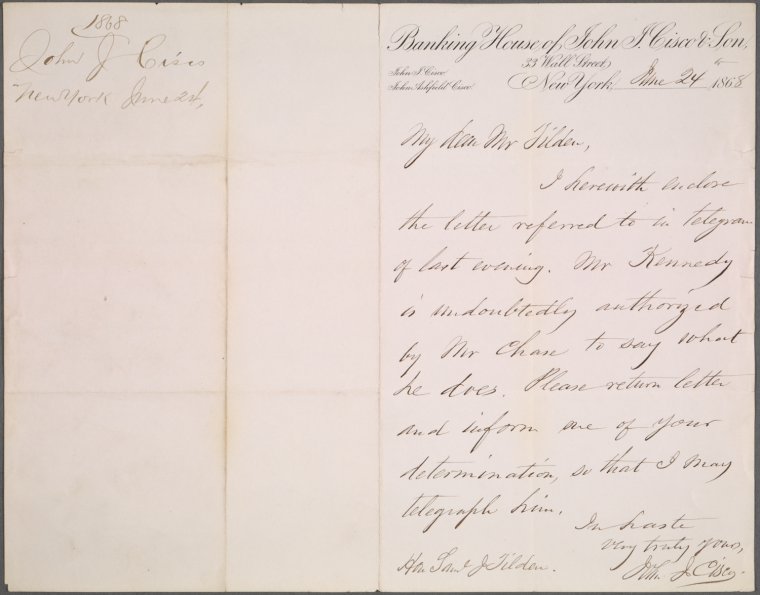 1868
John J Cisco
New York June 24,
Banking House of John J. Cisco & Son,
33 Wall Street
John J. Cisco.
John Ashfield Cisco.
New York, June 24 1868
My dear Mr Tilden,
I herewith enclose
the letter referred to in telegram
of last evening. Mr Kennedy
is undoubtedly authorized
by Mr Chase to say what
he does. Please return letter
and inform me of your
determination, so that I may
telegraph him.
In haste
very truly yours,
John J. Cisco.
Hon Saml J Tilden.